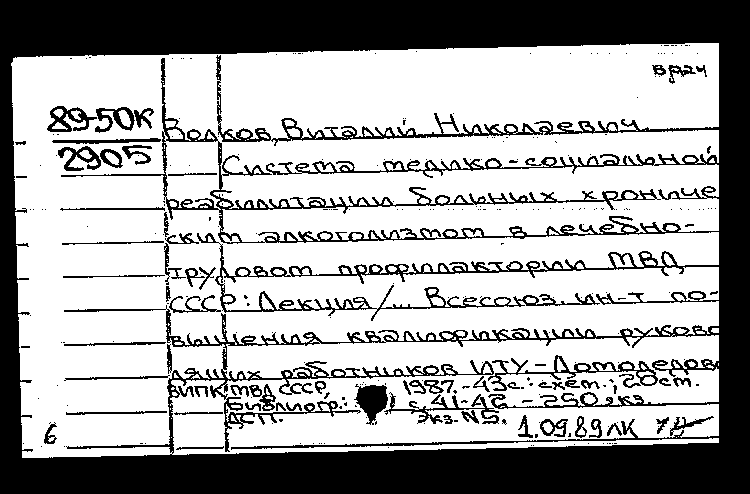 врач
89-50К
2905
Волков, Виталий Николаевич.
Система медико-социальной
реабилитации больных хрониче
ским алкоголизмом в лечебно-
трудовом профилактории МВД
СССР: Лекция /... Всесоюз. ин-т по-
вышения квалификации руково
дящих работников ИТУ.-Домодедово
ВИПК МВД СССР, 1987.-43с.: схем.; 20см.
Библиогр.: с.41-42. - 250 экз.
ДСП. Экз. N5.
6 1.09.89 ЛК